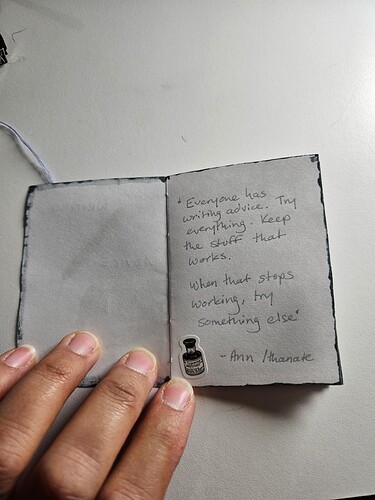 "Everyone has
writing advice. Try
everything. Keep
the stuff that
works.
When that stops
working, try
something else"
- Ann /thanate